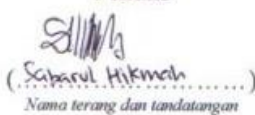 ( Sabarul Hikmah ............ )
Nama terang dan tandatangan